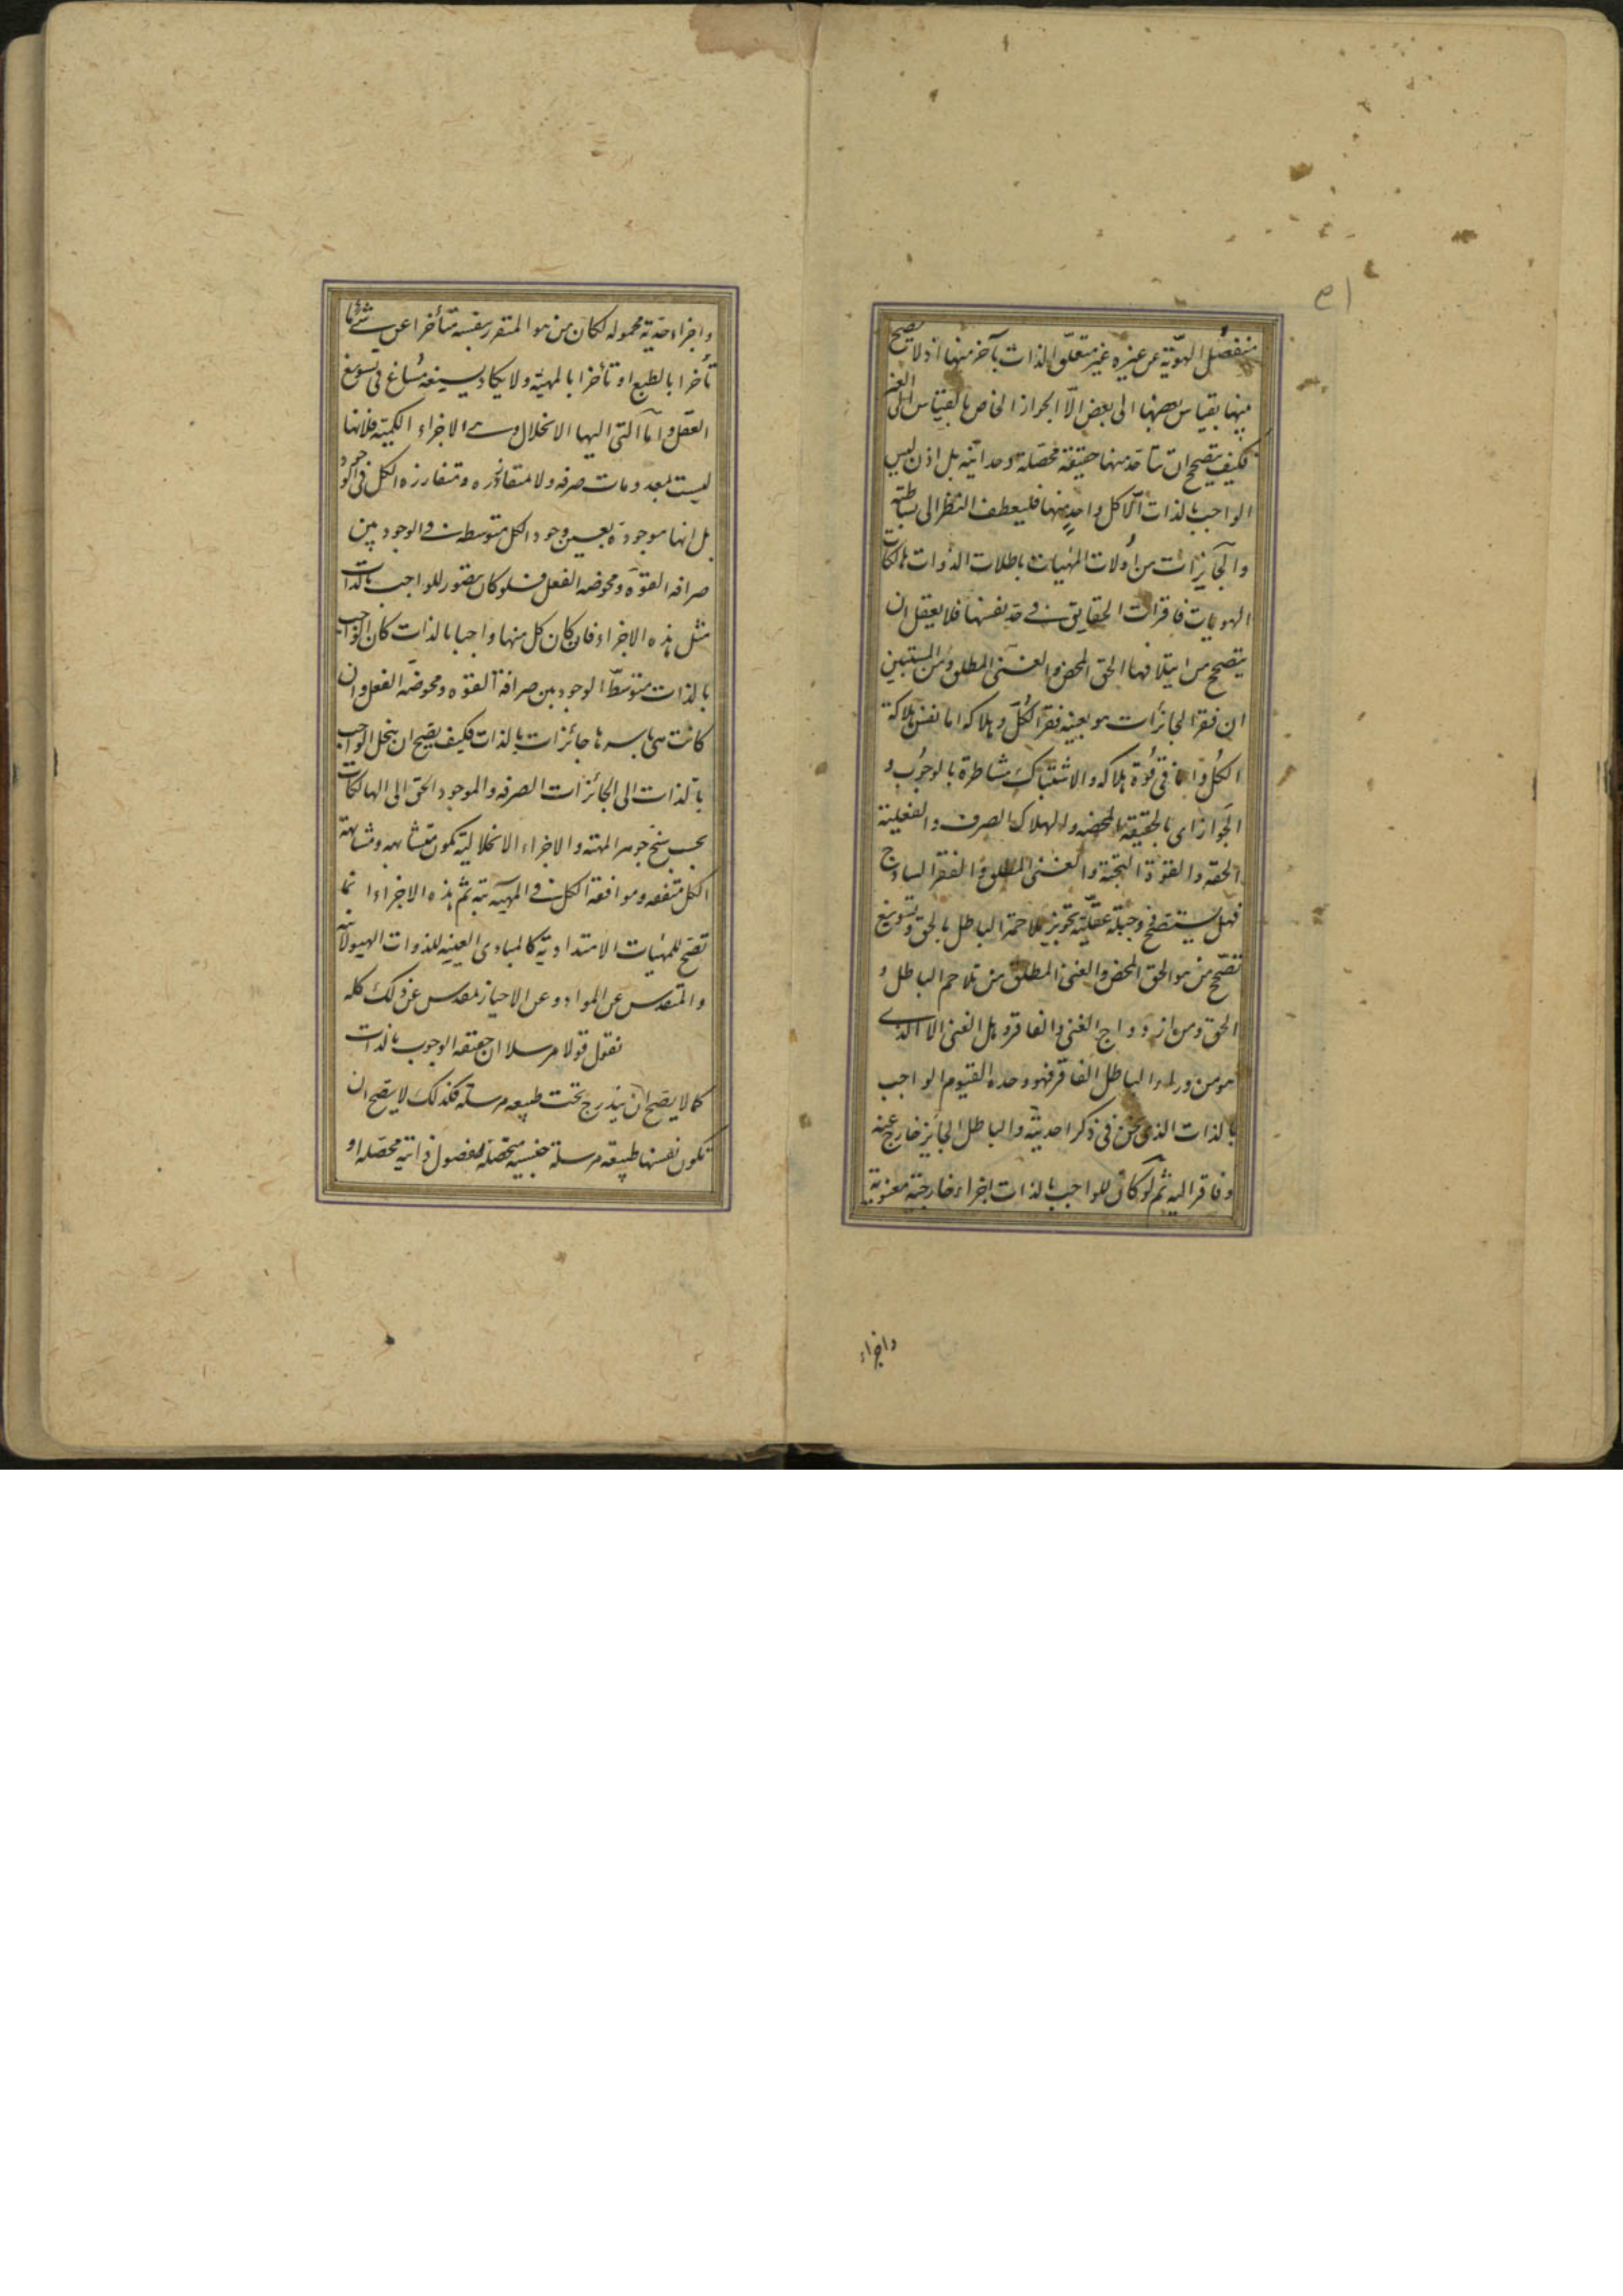 منفصل الهوية عن غيره غير متعلق الذات بآخر منها اذ لا يصح
بينها بقياس بعضها الى بعض الا الجواز الخاص بالقياس الى الغير
فكيف يتصحح ان يتأحد منها حقيقة محصلة وحدانية بل اذن ليس
الواجب بالذات الا كل واحد منها فليعطف النظر الى بساطته
والجايزات من اولات المهيات باطلات الذوات هالكات
الهويات فاقرات الحقايق في حد نفسها فلا يعقل ان
يتصحح من ايتلافها الحق المحض والغنى المطلق ومن المستبين
ان فقر الجائزات هو بعينه فقر الكل وهلاكه اما نفس هلاكة
الكل واما في قوة هلاكه والاشتباك مشاطرة بالوجوب و
الجواز اى بالحقيقة المحضه والهلاك الصرف والفعلية
الحقه والقوة البحتة والغنى المطلق والفقر الساذج
فهل يستصح وجبلة عقلية تجويز ملاحمة الباطل بالحق وتسويغ
تصحح من هو الحق المحض والغنى المطلق من تلاحم الباطل و
الحق ومن ازدواج الغنى والفاقر وهل الغنى الا الذى
هو من وراء الباطل الفاقر فهو وحده القيوم الواجب
بالذات الذى نحن في ذكر احديته والباطل الجايز خارج عنه
وفاقر اليه ثم لو كان للواجب بالذات اجزاء خارجية معنوية
واجزاء
واجزاء حدية محموله لكان من هو المتقرر بنفسه متأخرا عن شئ ما
تأخرا بالطبع او تأخرا بالمهية ولا يكاد يسيغه مساغ في تسويغ
العقل واما التى اليها الانحلال وهى الاجزاء الكمية فلانها
ليست بمعدومات صرفه ولا متفارزة ومتفارزه الكل في الوجود
بل انها موجودة بعين وجود الكل متوسطه في الوجود بين
صرافه القوة ومحوضه الفعل فلو كان يتصور للواجب بالذات
مثل هذه الاجزاء فان كان كل منها واجبا بالذات كان الواجب
بالذات متوسط الوجود بين صرافة القوه ومحوضة الفعل وان
كانت هى باسرها جائزات بالذات فكيف يصح ان ينحل الواجب
بالذات الى الجائزات الصرفه والموجود الحق الى الهالكات
بحسب سنخ جوهر المهية والاجزاء الانحلالية تكون متشابهه ومشابهة
الكل متفقه وموافقة الكل في المهية بتة ثم هذه الاجزاء انما
تصح للمهيات الامتدادية كالمبادى العينيه للذوات الهيولانيه
والمتقدس عن المواد وعن الاحياز مقدس عن ذلك كله
نقول قولا مرسلا ان حقيقه الوجوب بالذات
كما لا يصح ان يندرج تحت طبيعه مرسلة فكذلك لا يصح ان
تكون نفسها طبيعه مرسلة جنسيه متحصله بفصول ذاتيه محصله او